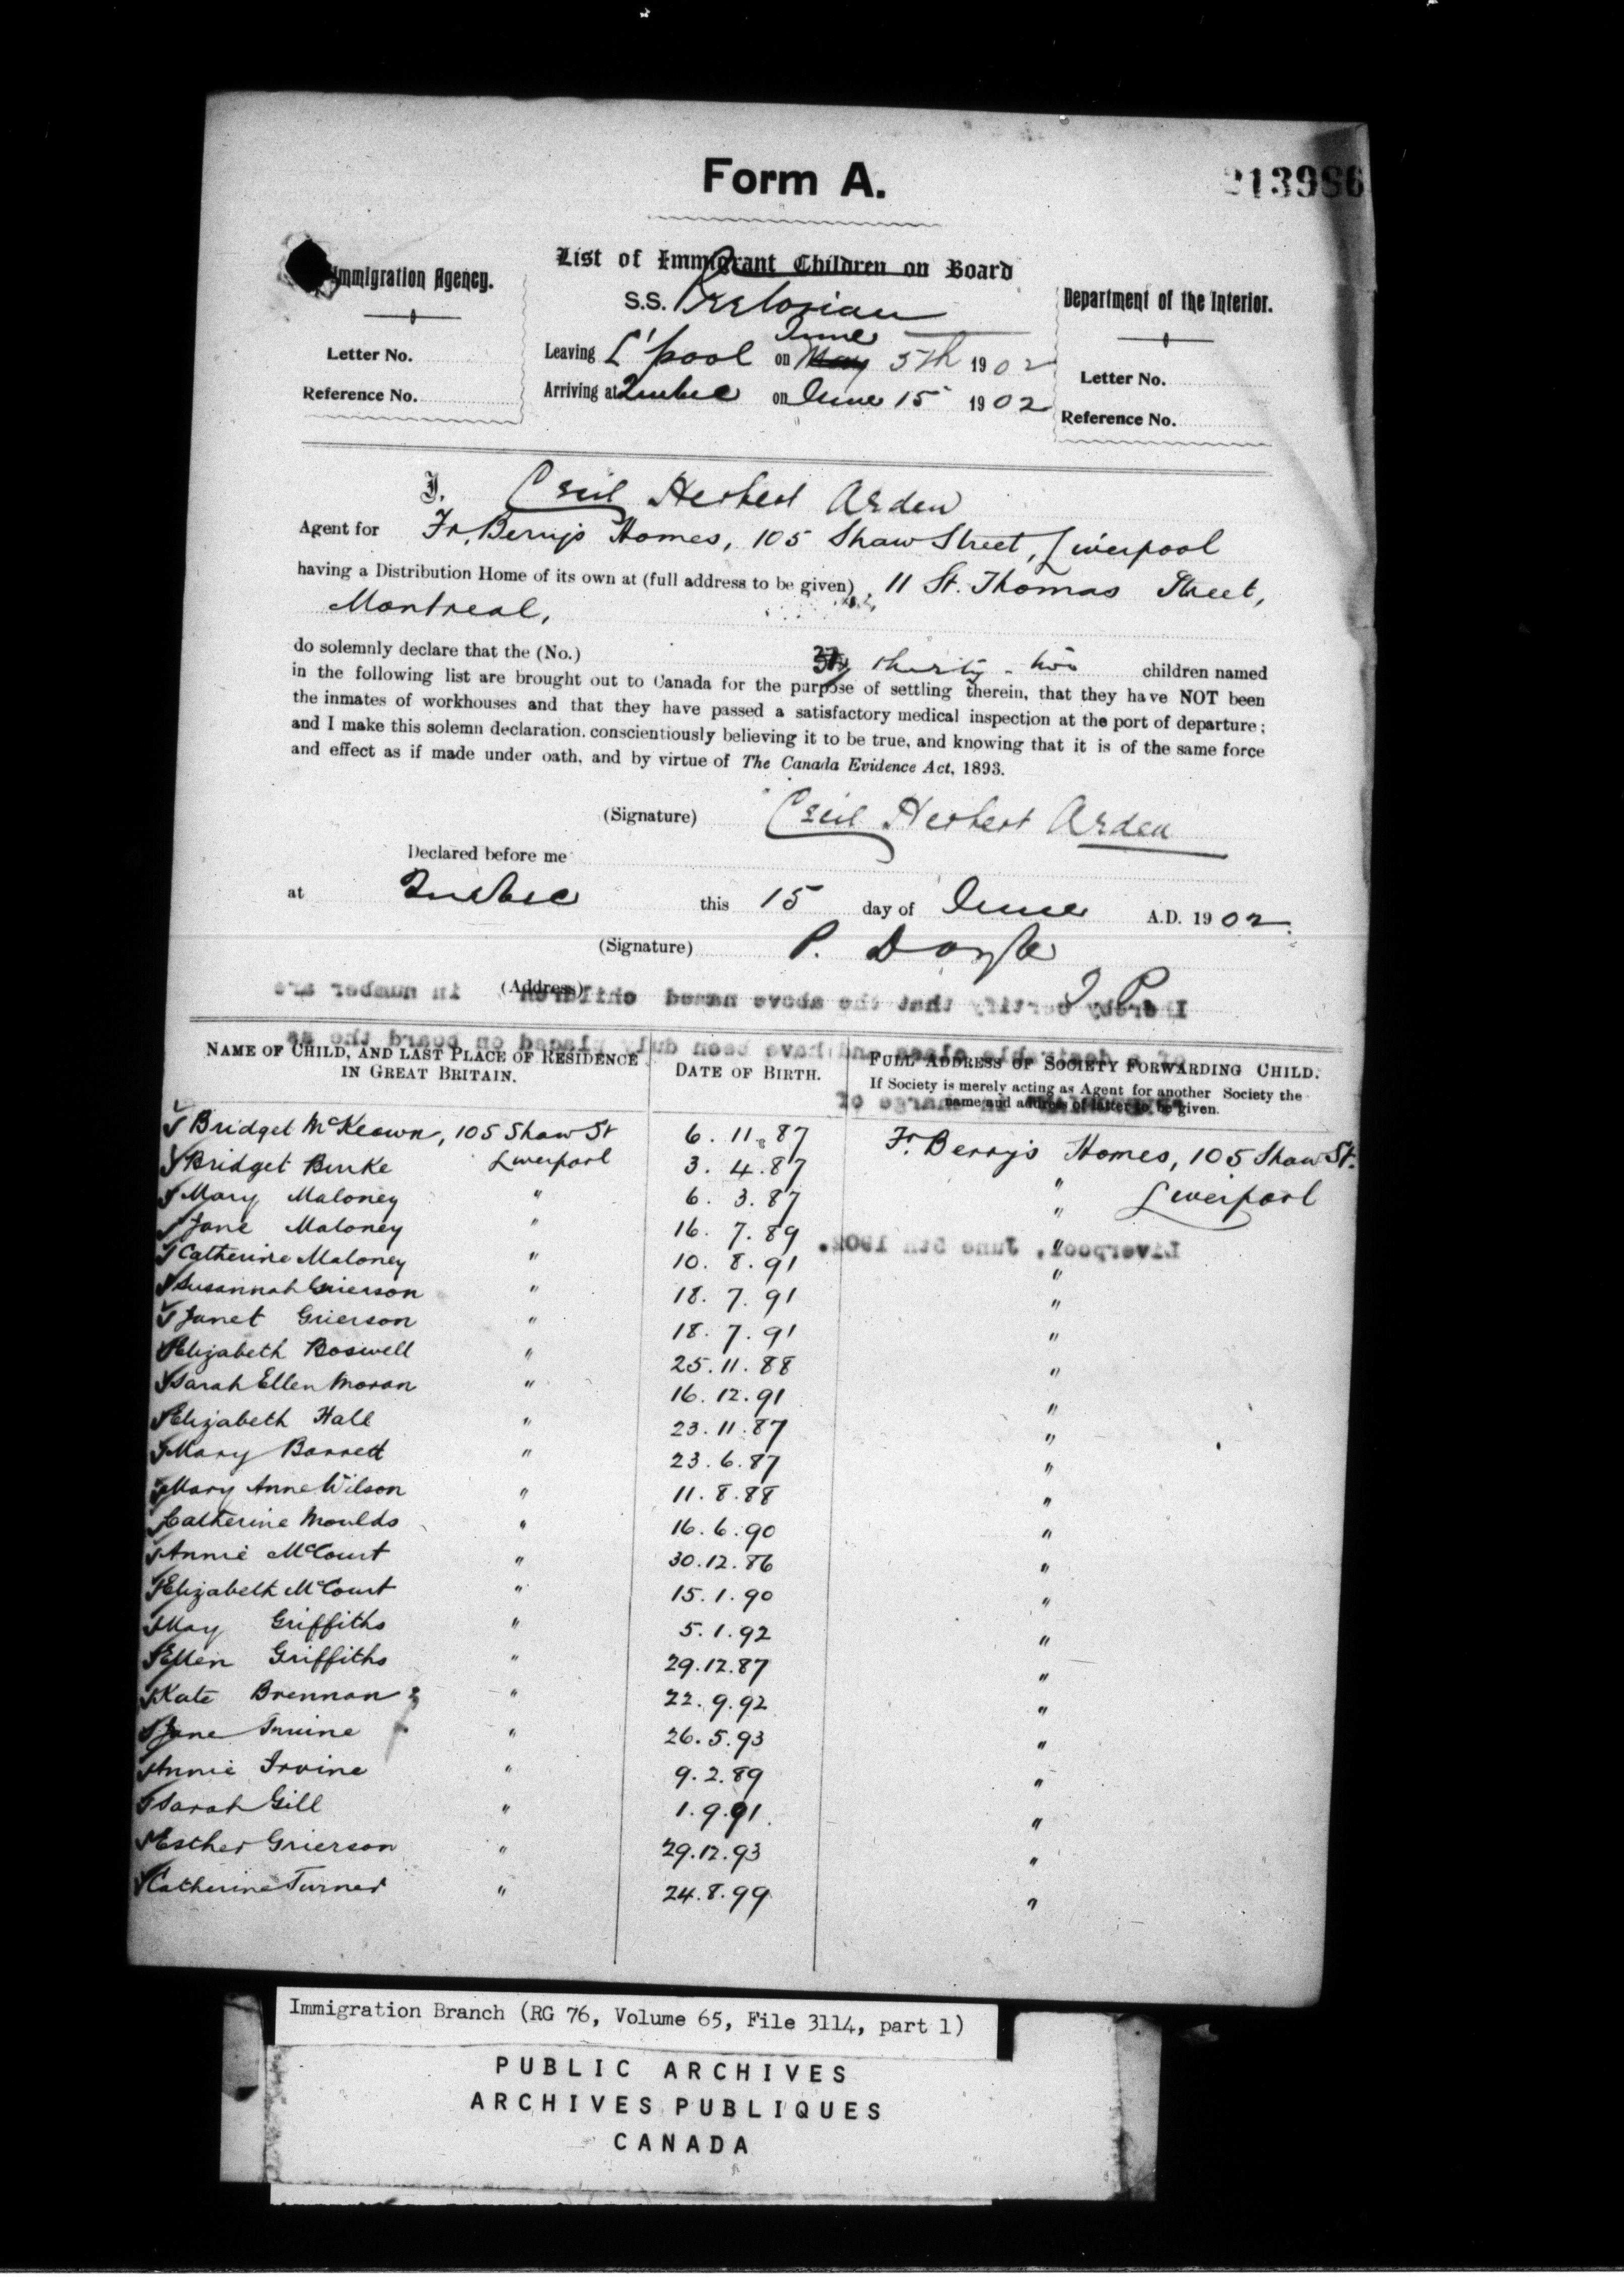 Form A.
213986
Immigration Agency.
Letter No.
Reference No.
List of Immigrant Children on Board
S.S. Pretorian
June
Leaving L'pool on May 5th 1902
Arriving at Quebec on June 15 1902
Department of the Interior.
Letter No.
Reference No.
I, Cecil Herbert Arden
Agent for Fr. Berry's Homes, 105 Shaw Street, Liverpool
having a Distribution Home of its own at (full address to be given), 11 St. Thomas Street,
Montreal,
do solemnly declare that the (No.) thirty-two children named
in the following list are brought out to Canada for the purpose of settling therein, that they have NOT been
the inmates of workhouses and that they have passed a satisfactory medical inspection at the port of departure;
and I make this solemn declaration. conscientiously believing it to be true, and knowing that it is of the same force
and effect as if made under oath, and by virtue of The Canada Evidence Act, 1893.
(Signature) Cecil Herbert Arden
Declared before me
at Quebec this 15 day of June A.D. 1902.
(Signature) P. Doyle
(Address) J P
I hereby certify that the above named children in number are
of a desirable class and have been duly placed on board the as
in charge of
NAME OF CHILD, AND LAST PLACE OF RESIDENCE IN GREAT BRITAIN.
DATE OF BIRTH.
FULL ADDRESS OF SOCIETY FORWARDING CHILD.
If Society is merely acting as Agent for another Society the
name and address of latter to be given.
Bridget McKeown, 105 Shaw St 6.11.87 Fr. Berry's Homes, 105 Shaw St.
Bridget Burke Liverpool 3.4.87 " Liverpool
Mary Maloney " 6.3.87 "
Jane Maloney " 16.7.89 "
Liverpool, June 5th 1902.
Catherine Maloney " 10.8.91 "
Susannah Grierson " 18.7.91 "
Janet Grierson " 18.7.91 "
Elizabeth Boswell " 25.11.88 "
Sarah Ellen Moran " 16.12.91 "
Elizabeth Hall " 23.11.87 "
Mary Barrett " 23.6.87 "
Mary Anne Wilson " 11.8.88 "
Catherine Moulds " 16.6.90 "
Annie McCourt " 30.12.86 "
Elizabeth McCourt " 15.1.90 "
May Griffiths " 5.1.92 "
Ellen Griffiths " 29.12.87 "
Kate Brennan " 22.9.92 "
Jane Irvine " 26.5.93 "
Annie Irvine " 9.2.89 "
Sarah Gill " 1.9.91. "
Esther Grierson " 29.12.93 "
Catherine Turner " 24.8.99 "
Immigration Branch (RG 76, Volume 65, File 3114, part 1)
PUBLIC ARCHIVES
ARCHIVES PUBLIQUES
CANADA